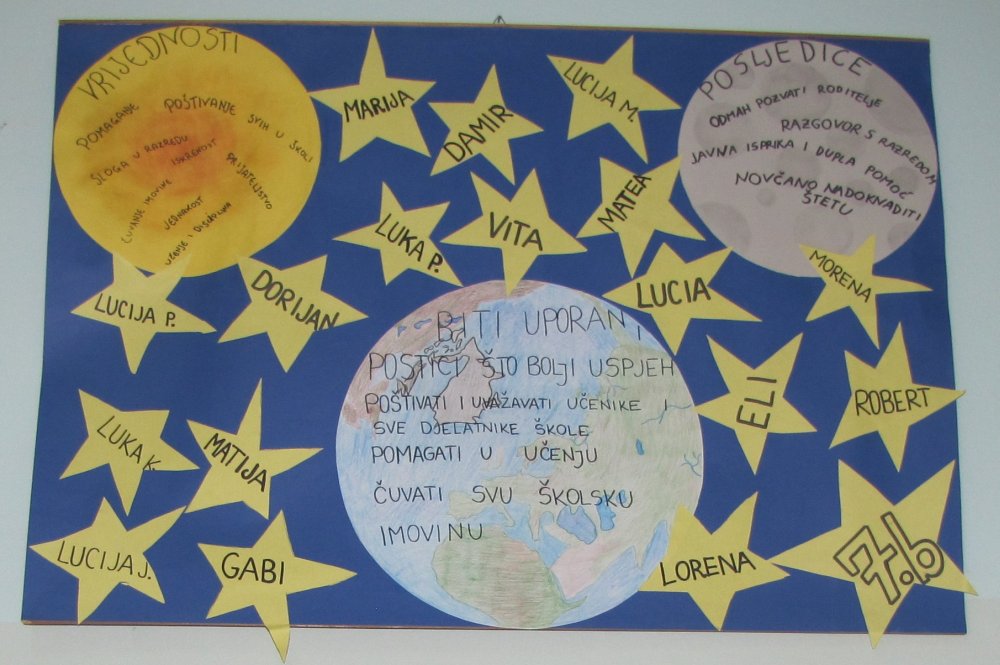 VRIJEDNOSTI
POMAGANJE
POŠTIVANJE SVIH U ŠKOLI
SLOGA U RAZREDU
ISKRENOST
PRIJATELJSTVO
ČUVANJE IMOVINE
JEDNAKOST
UČENJE I DISCIPLINA
MARIJA
DAMIR
LUCIJA M.
POSLJEDICE
ODMAH POZVATI RODITELJE
RAZGOVOR S RAZREDOM
JAVNA ISPRIKA I DUPLA POMOĆ
NOVČANO NADOKNADITI
ŠTETU
LUKA P.
VITA
MATEA
LUCIJA P.
DORIJAN
LUCIA
MORENA
BITI UPORAN,
POSTIĆI ŠTO BOLJI USPJEH
POŠTIVATI I UVAŽAVATI UČENIKE I
SVE DJELATNIKE ŠKOLE
POMAGATI U UČENJU
ČUVATI SVU ŠKOLSKU
IMOVINU
LUKA K.
MATIJA
ELI
ROBERT
LUCIJA J.
GABI
LORENA
7.b